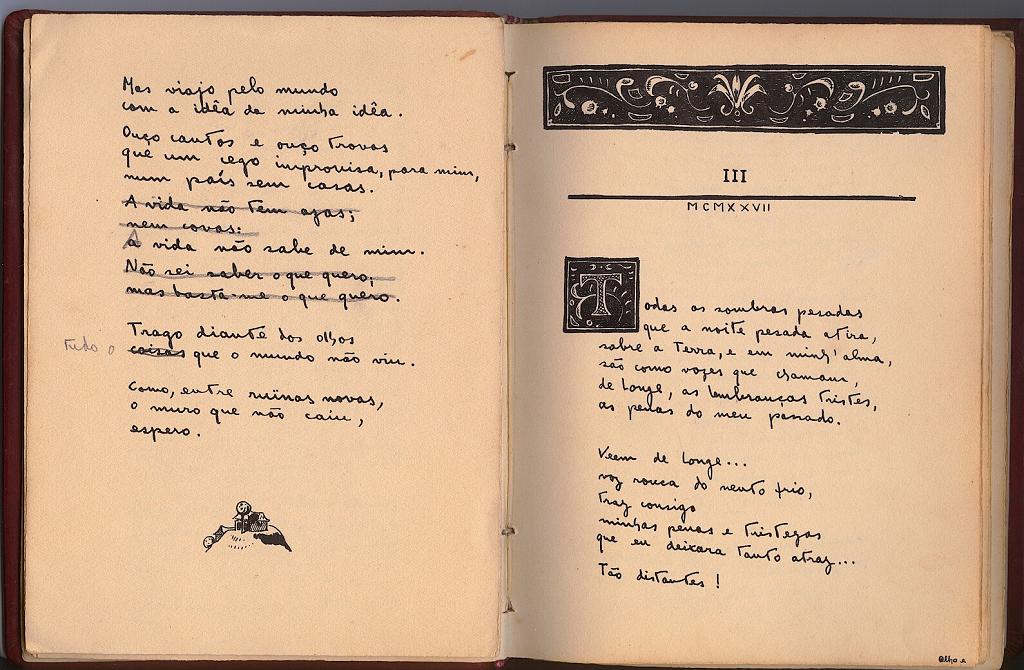 Mas viajo pelo mundo
com a idêa da minha idêa.
Ouço cantos e ouço trovas
que um cego improvisa, para mim,
num país sem casas.
A vida não tem azas;
nem covas:
A vida não sabe de mim.
Não sei saber o que quero;
mas basta-me o que quero.
Trago diante dos olhos
tudo o coisas que o mundo não viu.
Como, entre ruinas novas,
o muro que não caiu,
espero.
III
MCMXXVII
Todas as sombras pesadas
que a noite pesada atira,
sobre a Terra, e em minh'alma,
são como vozes que chamam,
de longe, as lembranças tristes,
as penas do meu passado.
Veem de longe...
voz rouca do vento frio,
traz consigo
minhas penas e tristezas
que eu deixara tanto atraz...
Tão distantes!
Olho e